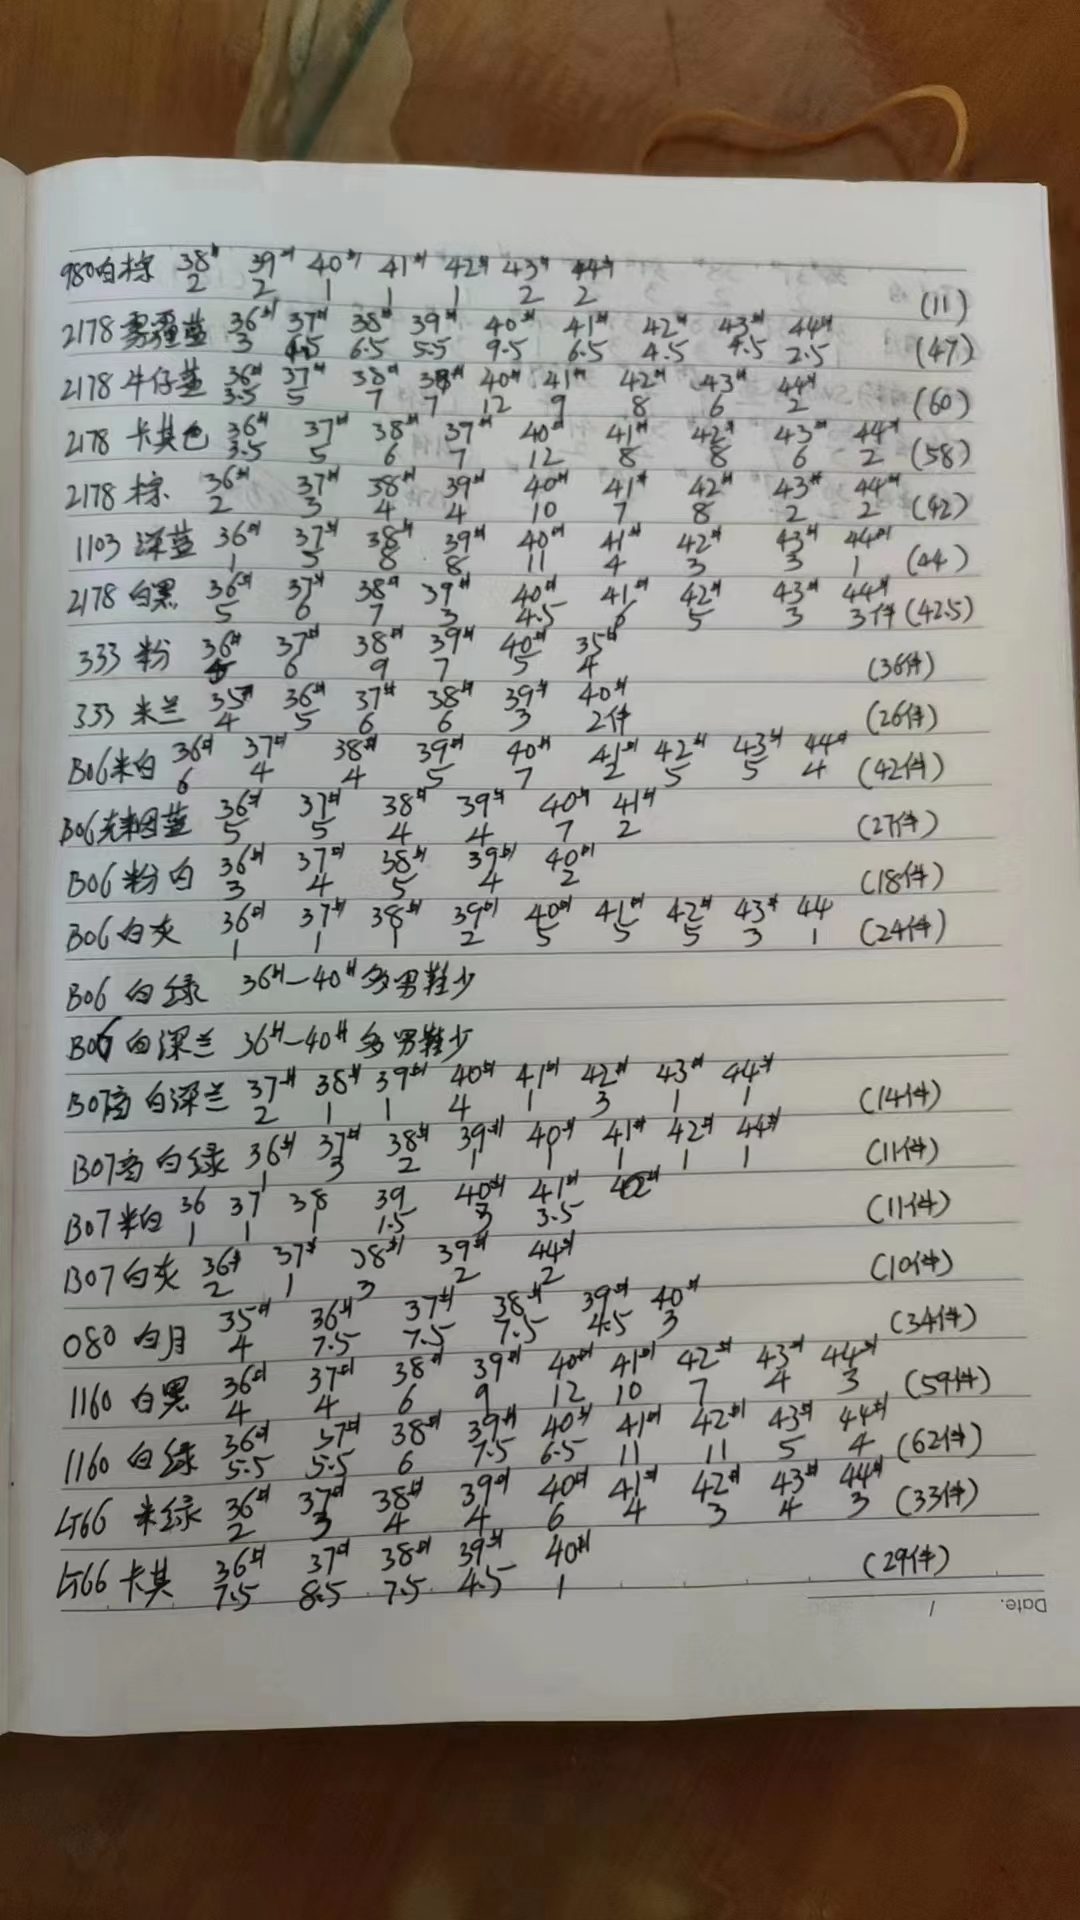 980白棕 38# 39# 40# 41# 42# 43# 44#
2 2 1 1 1 2 2 (11)
2178 雾霾蓝 36# 37# 38# 39# 40# 41# 42# 43# 44#
3 4.5 6.5 5.5 9.5 6.5 4.5 4.5 2.5 (47)
2178 牛仔蓝 36# 37# 38# 39# 40# 41# 42# 43# 44#
3.5 5 7 7 12 9 8 6 2 (60)
2178 卡其色 36# 37# 38# 37# 40# 41# 42# 43# 44#
3.5 5 6 7 12 8 8 6 2 (58)
2178 棕 36# 37# 38# 39# 40# 41# 42# 43# 44#
2 3 4 4 10 7 8 2 2 (42)
1103 深蓝 36# 37# 38# 39# 40# 41# 42# 43# 44#
1 5 8 8 11 4 3 3 1 (44)
2178 白黑 36# 37# 38# 39# 40# 41# 42# 43# 44#
5 6 7 3 4.5 6 5 3 3件 (42.5)
333 粉 36# 37# 38# 39# 40# 35#
5 6 9 7 5 4 (36件)
333 米兰 35# 36# 37# 38# 39# 40#
4 5 6 6 3 2件 (26件)
B06米白 36# 37# 38# 39# 40# 41# 42# 43# 44#
6 4 4 5 7 2 5 5 4 (42件)
B06 蓝 36# 37# 38# 39# 40# 41#
5 5 4 4 7 2 (27件)
B06 粉白 36# 37# 38# 39# 40#
3 4 5 4 2 (18件)
B06 白灰 36# 37# 38# 39# 40# 41# 42# 43# 44
1 1 1 2 5 5 5 3 1 (24件)
B06 白绿 36#—40#多男鞋少
B06 白深兰 36#—40#多男鞋少
B07高 白深兰 37# 38# 39# 40# 41# 42# 43# 44#
2 1 1 4 1 3 1 1 (14件)
B07高 白绿 36# 37# 38# 39# 40# 41# 42# 44#
1 3 2 1 1 1 1 1 (11件)
B07 米白 36 37 38 39 40# 41# 42#
1 1 1 1.5 3 3.5 (11件)
B07 白灰 36# 37# 38# 39# 44#
2 1 3 2 2 (10件)
080 白月 35# 36# 37# 38# 39# 40#
4 7.5 7.5 7.5 4.5 3 (34件)
1160 白黑 36# 37# 38# 39# 40# 41# 42# 43# 44#
4 4 6 9 12 10 7 4 3 (59件)
1160 白绿 36# 37# 38# 39# 40# 41# 42# 43# 44#
5.5 5.5 6 7.5 6.5 11 11 5 4 (62件)
LT66 米绿 36# 37# 38# 39# 40# 41# 42# 43# 44#
2 3 4 4 6 4 3 4 3 (33件)
LT66 卡其 36# 37# 38# 39# 40#
7.5 8.5 7.5 4.5 1 (29件)
Date. /